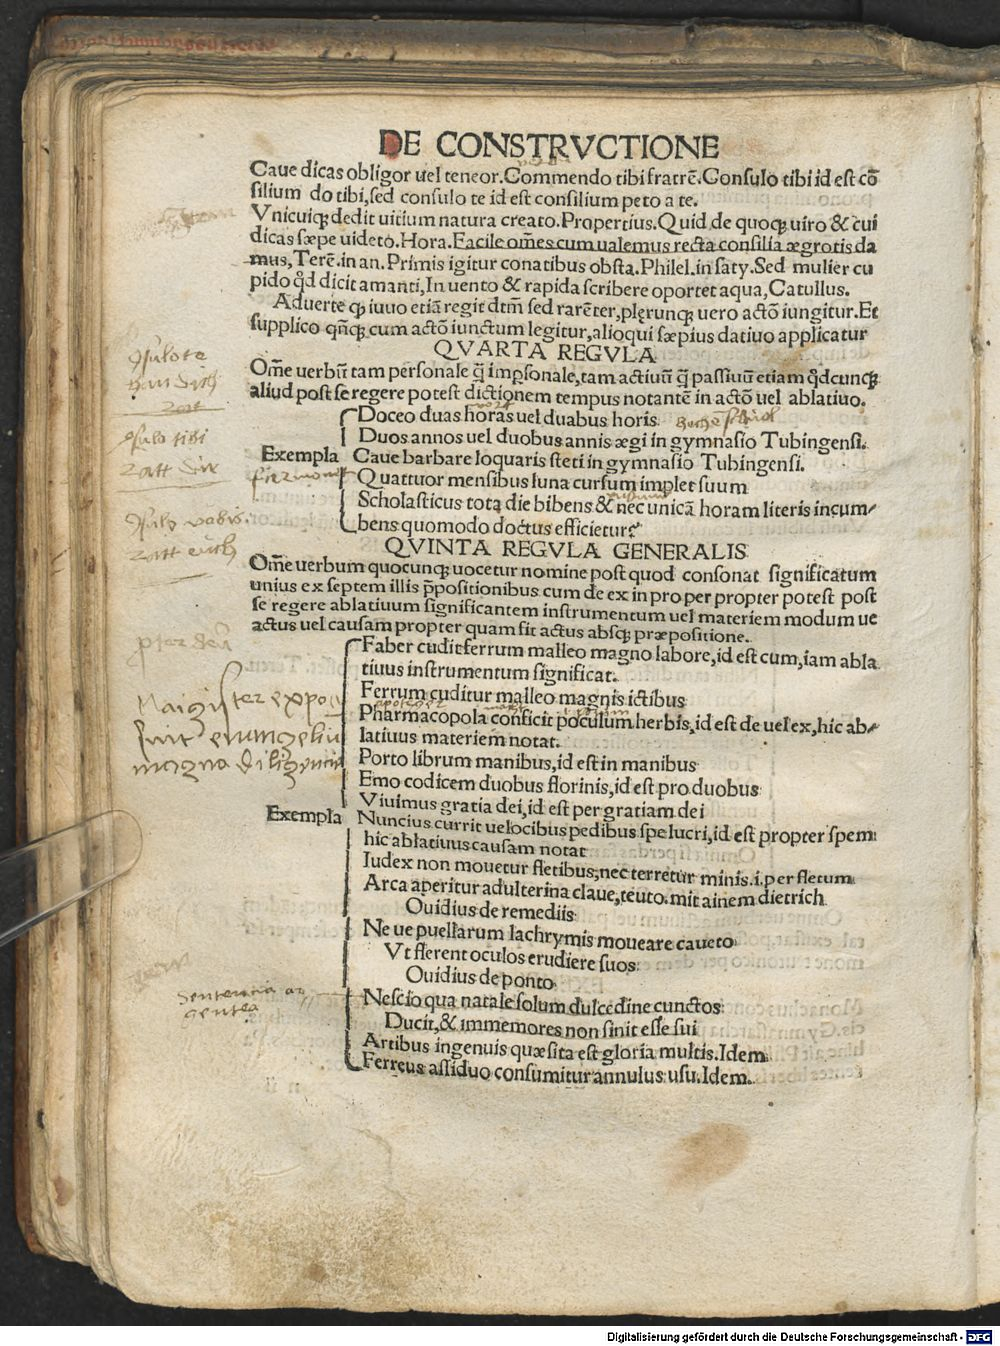 DE CONSTRVCTIONE
Caue dicas obligor uel teneor. Commendo tibi fratrē. Consulo tibi id est cō
silium do tibi, sed consulo te id est consilium peto a te.
Vnicuiq; dedit uitium natura creato. Propertius. Quid de quoq; uiro & cui
dicas sæpe uideto. Hora. Facile om̄es cum ualemus recta consilia ægrotis da
mus, Terē. in an. Primis igitur conatibus obsta. Philel. in saty. Sed mulier cu
pido qd̄ dicit amanti, In uento & rapida scribere oportet aqua, Catullus.
Aduerte q; iuuo etiā regit dtm̄ sed rarēter, plęrunq; uero actō iungitur. Et
supplico qn̄q; cum actō iunctum legitur, alioqui sæpius datiuo applicatur
QVARTA REGVLA
Om̄e uerbū tam personale q̄ imꝑsonale, tam actiuū q̄ passiuū etiam qd̄cunq;
aliud post se regere potest dictionem tempus notantē in actō uel ablatiuo.
Doceo duas horas uel duabus horis.
Duos annos uel duobus annis ægi in gymnasio Tubingensi.
Exempla Caue barbare loquaris steti in gymnasio Tubingensi.
Quattuor mensibus luna cursum implet suum
Scholasticus tota die bibens & nec unicā horam literis incum-
bens quomodo doctus efficietur?
QVINTA REGVLA GENERALIS
Om̄e uerbum quocunq; uocetur nomine post quod consonat significatum
unius ex septem illis p̄positionibus cum de ex in pro per propter potest post
se regere ablatiuum significantem instrumentum uel materiem modum ue
actus uel causam propter quam fit actus absq; præpositione.
Faber cudit ferrum malleo magno labore, id est cum, iam abla
tiuus instrumentum significat.
Ferrum cuditur malleo magnis ictibus
Pharmacopola conficit poculum herbis, id est de uel ex, hic ab-
latiuus materiem notat.
Porto librum manibus, id est in manibus
Emo codicem duobus florinis, id est pro duobus
Viuimus gratia dei, id est per gratiam dei
Exempla Nuncius currit uelocibus pedibus spe lucri, id est propter spem
hic ablatiuus causam notat
Iudex non mouetur fletibus, nec terretur minis .i. per fletum
Arca aperitur adulterina claue, teuto. mit ainem dietrich
Ouidius de remediis
Ne ue puellarum lachrymis moueare caueto
Vt flerent oculos erudiere suos
Ouidius de ponto
Nescio qua natale solum dulcedine cunctos
Ducit, & immemores non sinit esse sui
Artibus ingenuis quæsita est gloria multis. Idem
Ferreus assiduo consumitur annulus usu. Idem
Maigister expo
magna diligencia
Sentencia ar
gentea
Digitalisierung gefördert durch die Deutsche Forschungsgemeinschaft - DFG